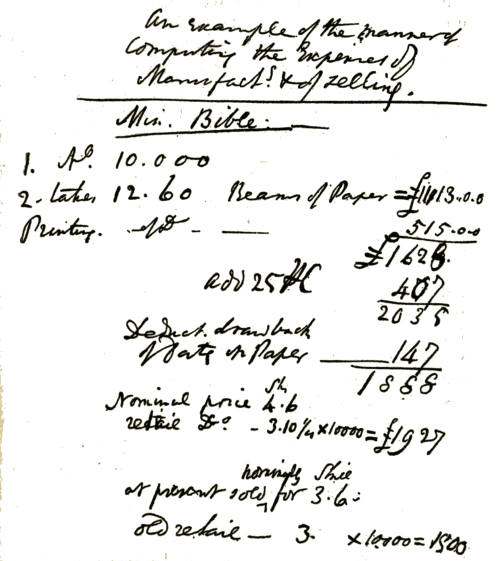 An Example of the manner of
Computing the Expenses of
Manufact.g & of selling.
Min. Bible.
1. No. 10.000
2. takes 12.60 Reams of Paper = £1113..0.0
Printing. of Do - 515.0.0
£1628.
add 25 PC 407
2035
Deduct. drawback
of Duty on Paper 147
1888
Sh
Nominal price 4.6
retaile Do. - 3.10¼ x 10000 = £1927
nominaly
at present sold for 3.6.
old retail - 3. x 10000 = 1500